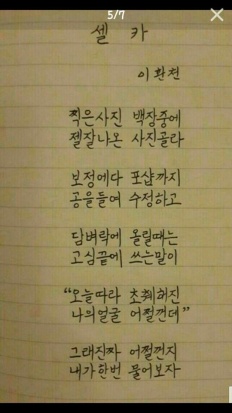 5/7
셀 카
이환천
찍은사진 백장중에
젤잘나온 사진골라
보정에다 포샵까지
공을들여 수정하고
담벼락에 올릴때는
고심끝에 쓰는말이
“오늘따라 초췌해진
나의얼굴 어쩔껀데”
그래진짜 어쩔껀지
내가한번 물어보자